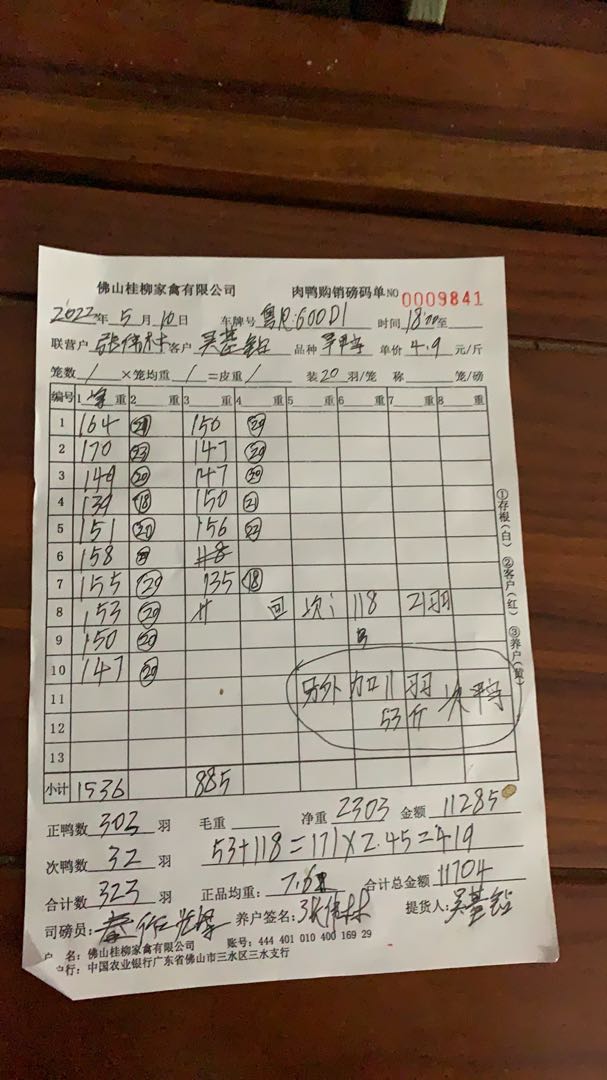 佛山桂柳家禽有限公司 肉鸭购销磅码单NO 0009841
2022年 5 月 10 日 车牌号 粤R:600D1 时间 18:20至
联营户 张伟林 客户 吴基钻 品种 单价 4.9 元/斤
笼数 / ×笼均重 / =皮重 / 装 20 羽/笼 称 笼/磅
编号 1 重 2 重 3 重 4 重 5 重 6 重 7 重 8 重
1 164 150
2 170 23 147 20
3 149 20 147 20
4 139 18 150 21
5 151 156
6 158 118
7 155 20 135 18
8 153 20 次: 118 21羽
9 150 20
10 147 20
11 另外加11羽
12 53斤 次鸭
13
小计 1536 885
正鸭数 303 羽 毛重 净重 2303 金额 11285
次鸭数 32 羽 53+118=171×2.45=419
合计数 323 羽 正品均重: 7.6 合计总金额 11704
司磅员: 养户签名: 张伟林 提货人: 吴基钻
户 名: 佛山桂柳家禽有限公司 账号: 444 401 010 400 169 29
户行: 中国农业银行广东省佛山市三水区三水支行
①存根(白) ②客户(红) ③养户(黄)